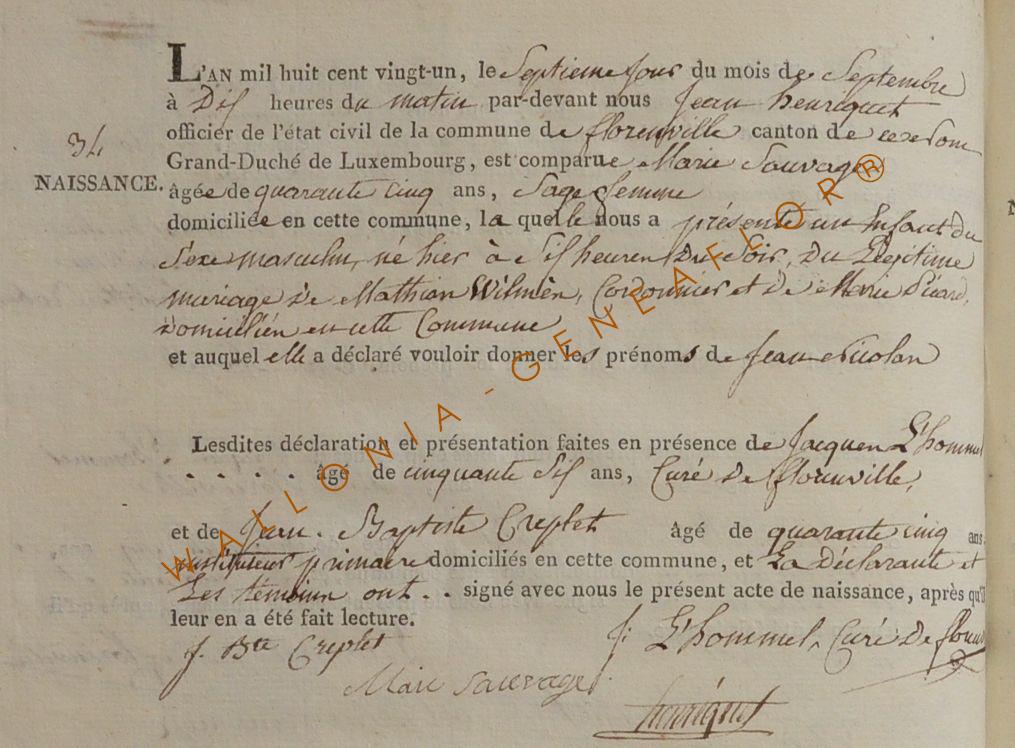 L'AN mil huit cent vingt-un, le Septieme jour du mois de Septembre
à Dix heures du matin par-devant nous Jean henriquet
officier de l'état civil de la commune de florenville canton de
34
Grand-Duché de Luxembourg, est comparue Marie Sauvage
NAISSANCE.
âgée de quarante cinq ans, Sage femme
domiciliée en cette commune, la quelle nous a présenté un Enfant du
Sexe masculin, né hier à Six heures Du Soir, Du Légitime
mariage de Mathias Wilmès, Cordonnier et De Marie Picard,
Domiciliés en cette Commune
et auquel elle a déclaré vouloir donner les prénoms de Jean Nicolas
Lesdites déclaration et présentation faites en présence de Jacques L'hommel
. . . . . âgé de cinquante Six ans, Curé de florenville,
et de Jean. Baptiste Creplet âgé de quarante cinq ans
instituteur primaire domiciliés en cette commune, et La Déclarante et
Les témoins ont . . signé avec nous le présent acte de naissance, après qu'il
leur en a été fait lecture.
J. Bte Creplet
J: L'hommel, Curé De
Marie Sauvage
henriquet
WALLONIA-GENEAFLOR®